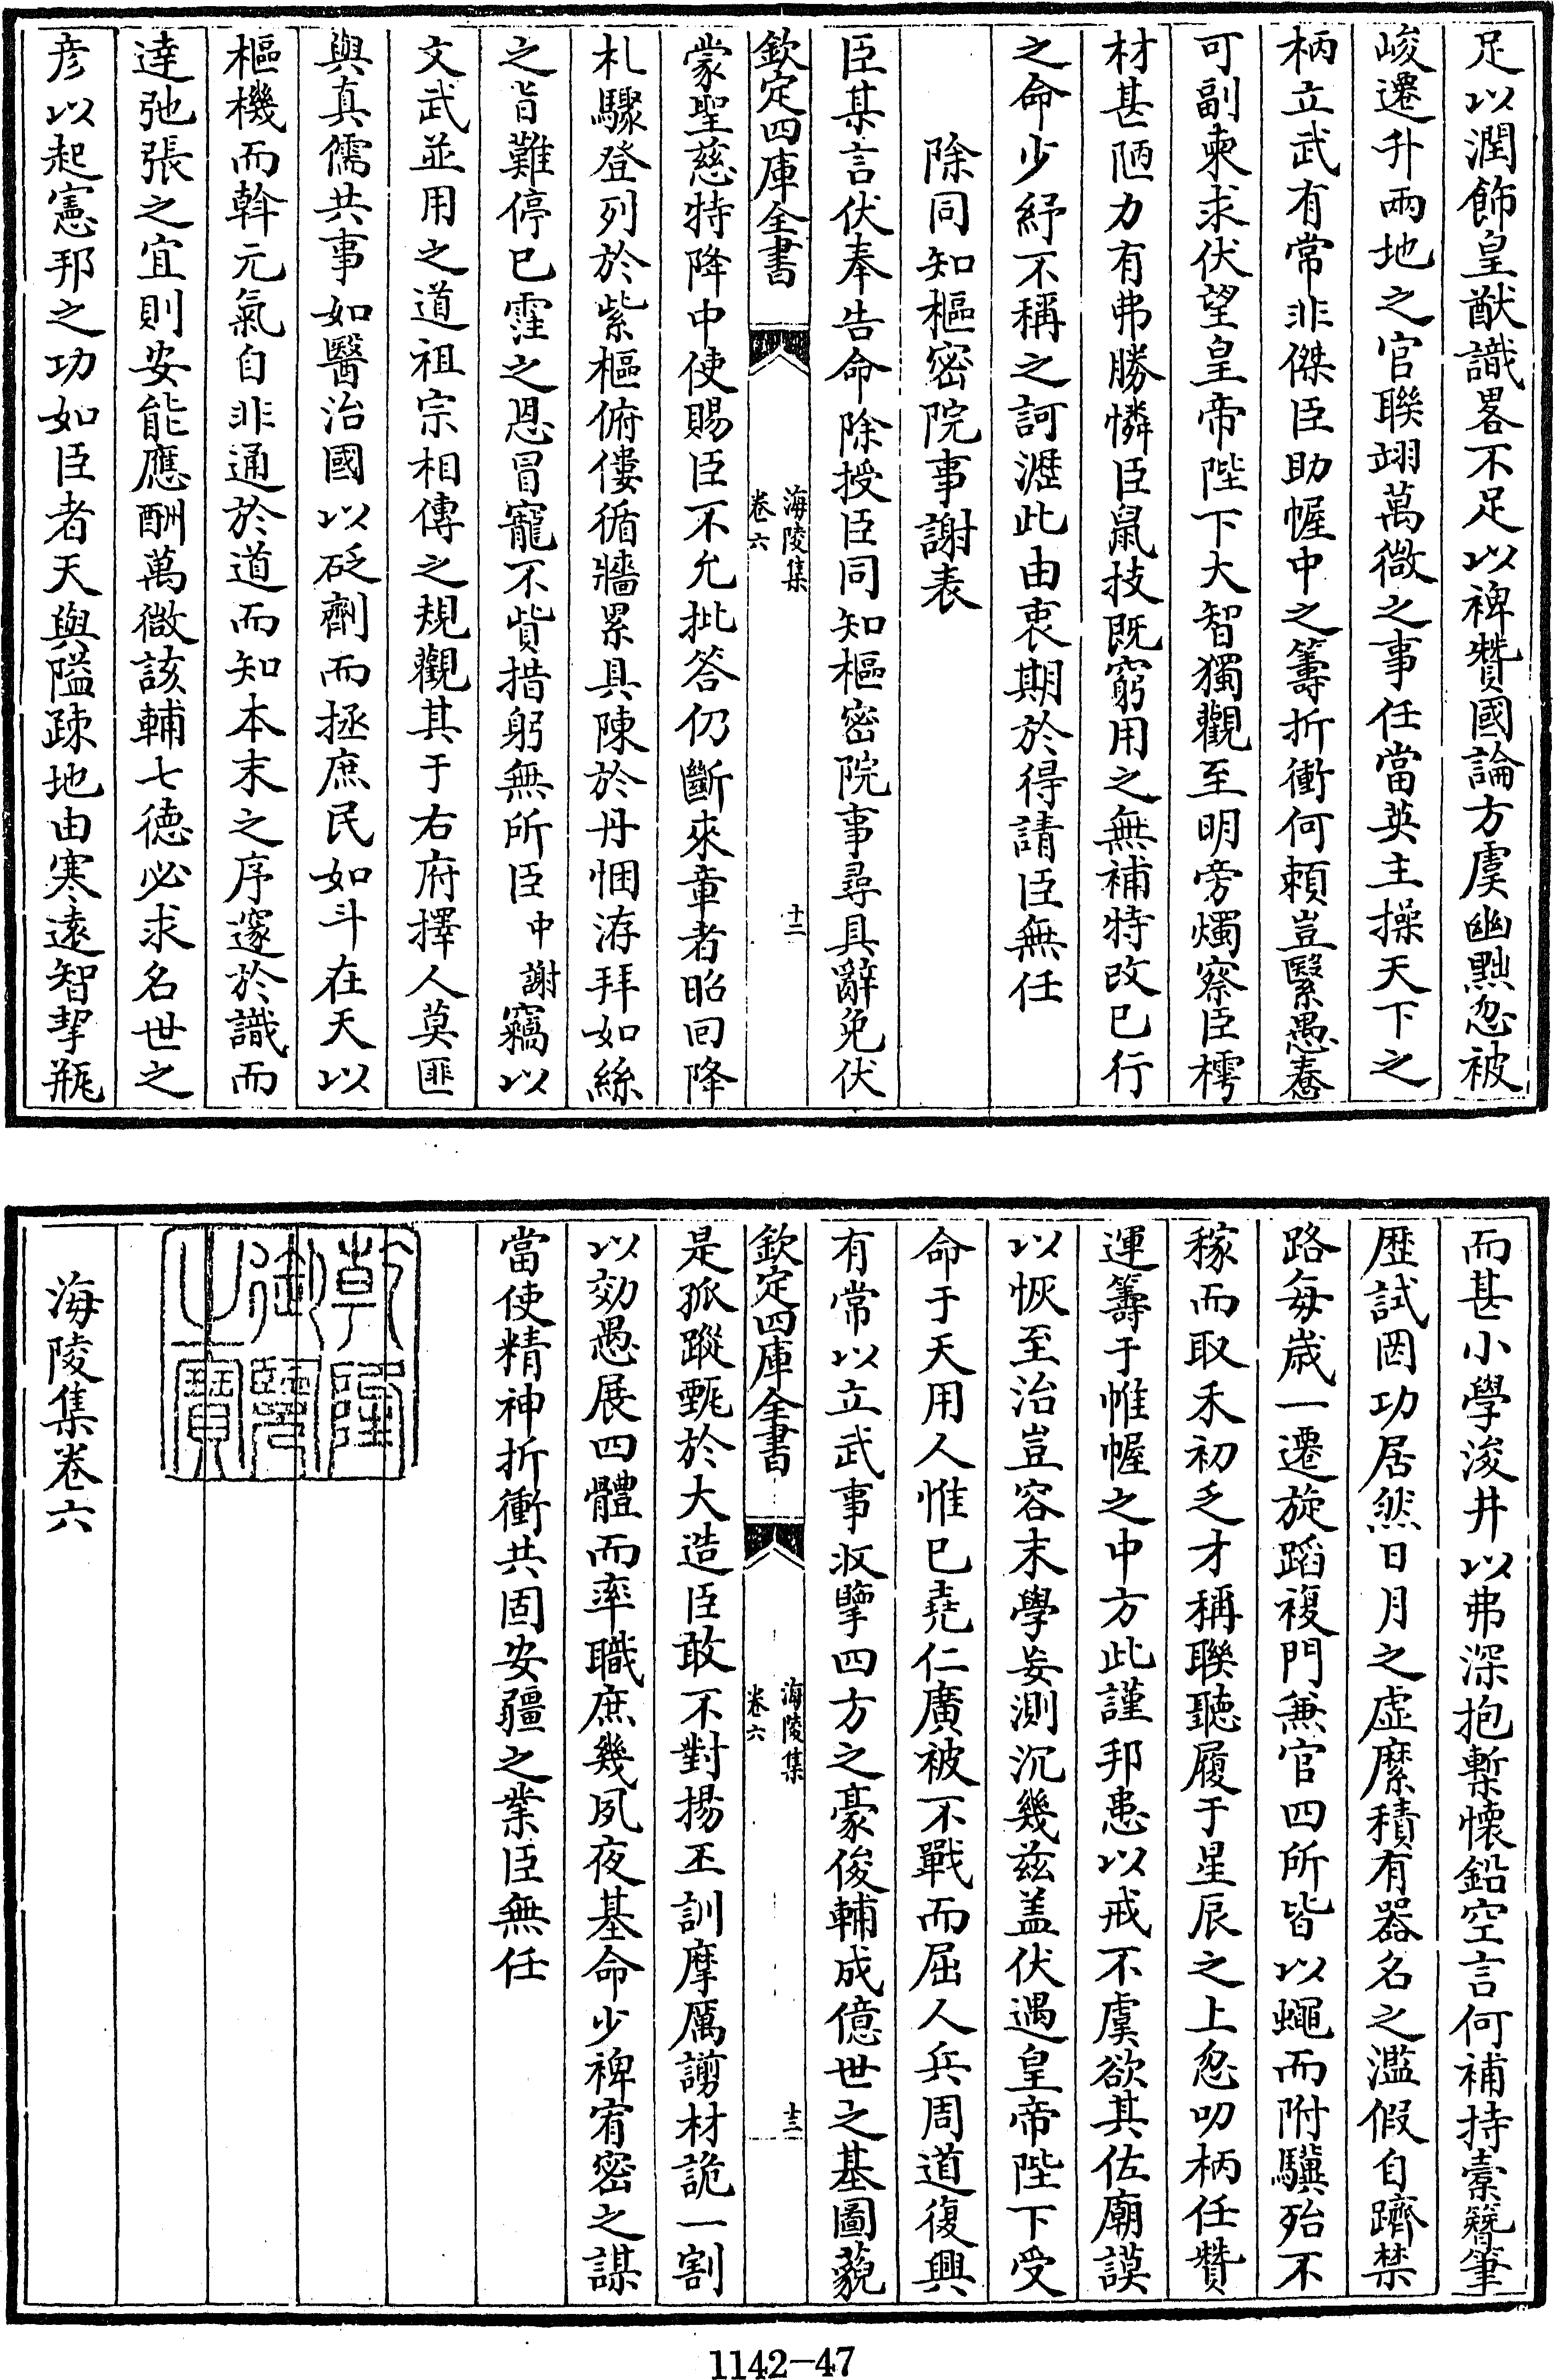 足以潤飾皇猷識畧不足以裨贊國論方虞幽黜忽被
峻遷升兩地之官聯翊萬微之事任當英主操天下之
柄立武有常非傑臣助幄中之籌折衝何頼豈繄愚憃
可副柬求伏望皇帝陛下大智獨觀至明旁燭察臣樗
材甚陋力有弗勝憐臣鼠技既窮用之無補特改已行
之命少紓不稱之訶瀝此由衷期於得請臣無任
除同知樞密院事謝表
臣某言伏奉告命除授臣同知樞密院事尋具辭免伏
欽定四庫全書
海陵集
卷六
十二
蒙聖慈特降中使賜臣不允批答仍斷來章者昭回降
札驟登列於紫樞俯僂循牆累具陳於丹悃洊拜如絲
之㫖難停已霔之恩冒寵不貲措躬無所臣中謝竊以
文武並用之道祖宗相傳之規觀其于右府擇人莫匪
與真儒共事如醫治國以砭劑而拯庶民如斗在天以
樞機而斡元氣自非通於道而知本末之序邃於識而
達弛張之宜則安能應酬萬微該輔七德必求名世之
彦以起憲邦之功如臣者天與隘踈地由寒逺智挈瓶
而甚小學浚井以弗深抱槧懷鉛空言何補持橐簪筆
歴試罔功居然日月之虚縻積有器名之濫假自躋禁
路每歳一遷旋蹈複門兼官四所皆以蠅而附驥殆不
稼而取禾初乏才稱聯聽履于星辰之上忽叨柄任贊
運籌于帷幄之中方此謹邦患以戒不虞欲其佐廟謨
以恢至治豈容末學妄測沉幾兹盖伏遇皇帝陛下受
命于天用人惟已堯仁廣被不戰而屈人兵周道復興
有常以立武事收擥四方之豪俊輔成億世之基圖藐
欽定四庫全書
海陵集
卷六
十三
是孤蹤甄於大造臣敢不對揚丕訓摩厲謭材詭一割
以効愚展四體而率職庶幾夙夜基命少裨宥密之謀
當使精神折衝共固安疆之業臣無任
乾隆御覽之寶
海陵集卷六
1142-47